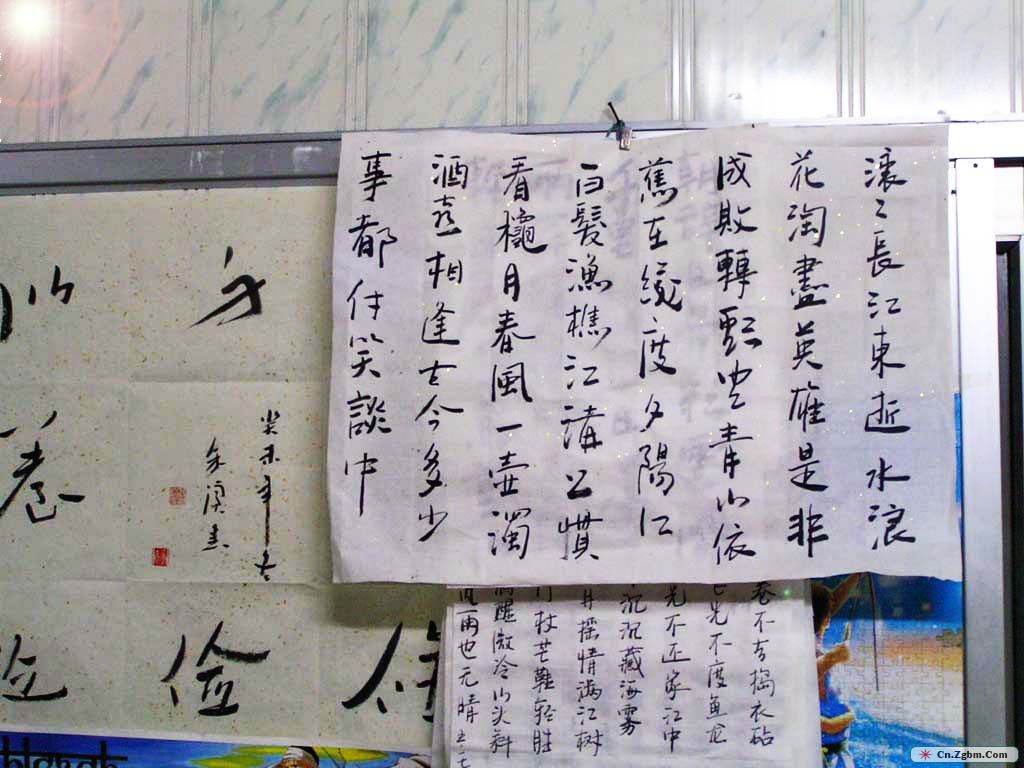 滚〻長江東逝水浪
花淘盡英雄是非
成敗轉頭空青山依
舊在幾度夕陽红
白髮漁樵江渚上慣
看龝月春風一壺濁
酒喜相逢古今多少
事都付笑談中
卷不去搗衣砧
光不度鱼龙
不还家江
沉沉藏海雾
月摇情满江树
竹杖芒鞋轻胜
酒醒微冷山头斜
風雨也无晴
癸未年冬
養
儉
Cn.Zgbm.Com